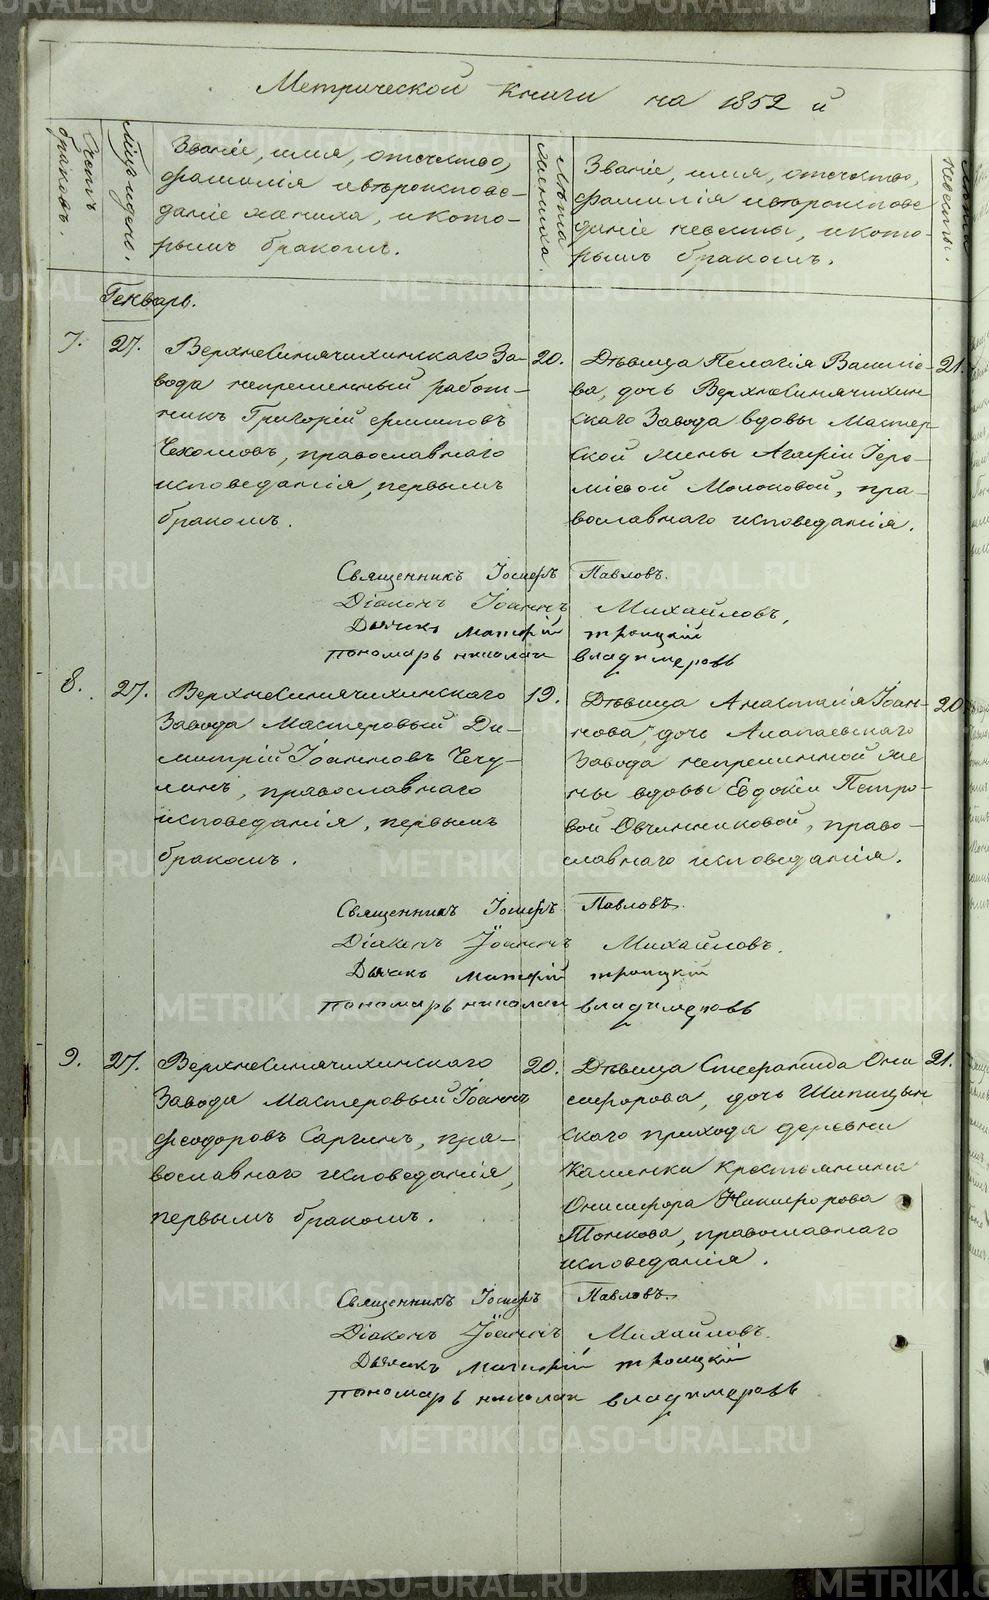 Метрической книги на 1852 й
Счетъ браковъ.
Мѣсяцъ и день.
Званіе, имя, отечество,
фамилія и вѣроисповѣ-
даніе жениха, и кото-
рымъ бракомъ.
Лѣта жениха.
Званіе, имя, отечество,
фамилія и вѣроисповѣ
даніе невѣсты, и кото-
рымъ бракомъ.
Лѣта невѣсты.
Генварь.
7.
27.
Верхнесинячихинскаго За-
вода непременный работ-
никъ Григорій
Чехомовъ, православнаго
исповеданія, первымъ
бракомъ.
20.
Дѣвица Пелагія Василіе-
ва, дочь Верхнесинячихин
скаго Завода вдовы Мастер
ской жены Агафіи Іере-
міевой Молоковой, пра-
вославнаго исповеданія.
21.
Священникъ Іосифъ Павловъ.
Діаконъ Іоаннъ Михайловъ,
Дьячикъ Матфій троицкій
пономарь николаи владимеровъ
8.
27.
Верхнесинячихинскаго
Завода Мастеровый Ди-
митрій Іоанновъ Чечу-
линъ, православнаго
исповеданія, первымъ
бракомъ.
19.
Дѣвица Анастасія Іоан-
нова, дочь Алапаевскаго
Завода непременной же
ны вдовы Евдокіи Петро-
вой Овчинниковой, право-
славнаго исповеданія.
20.
Священникъ Іосифъ Павловъ.
Діаконъ Іоаннъ Михайловъ.
Дьячикъ Матфій троицкій
пономарь николаи владимеровъ
9.
27.
Верхнесинячихинскаго
Завода Мастеровый Іоаннъ
Феодоровъ Саргинъ, пра-
вославнаго исповеданія,
первымъ бракомъ.
20.
Дѣвица Стефанида Они
сифорова, дочь Шипицын
скаго прихода деревни
Каменки Крестьянина
Онисифора Никифорова
Тонкова, православнаго
исповеданія.
21.
Священникъ Іосифъ Павловъ.
Діаконъ Іоаннъ Михайловъ.
Дьячикъ Матфій троицкій
пономарь николаи владимеровъ